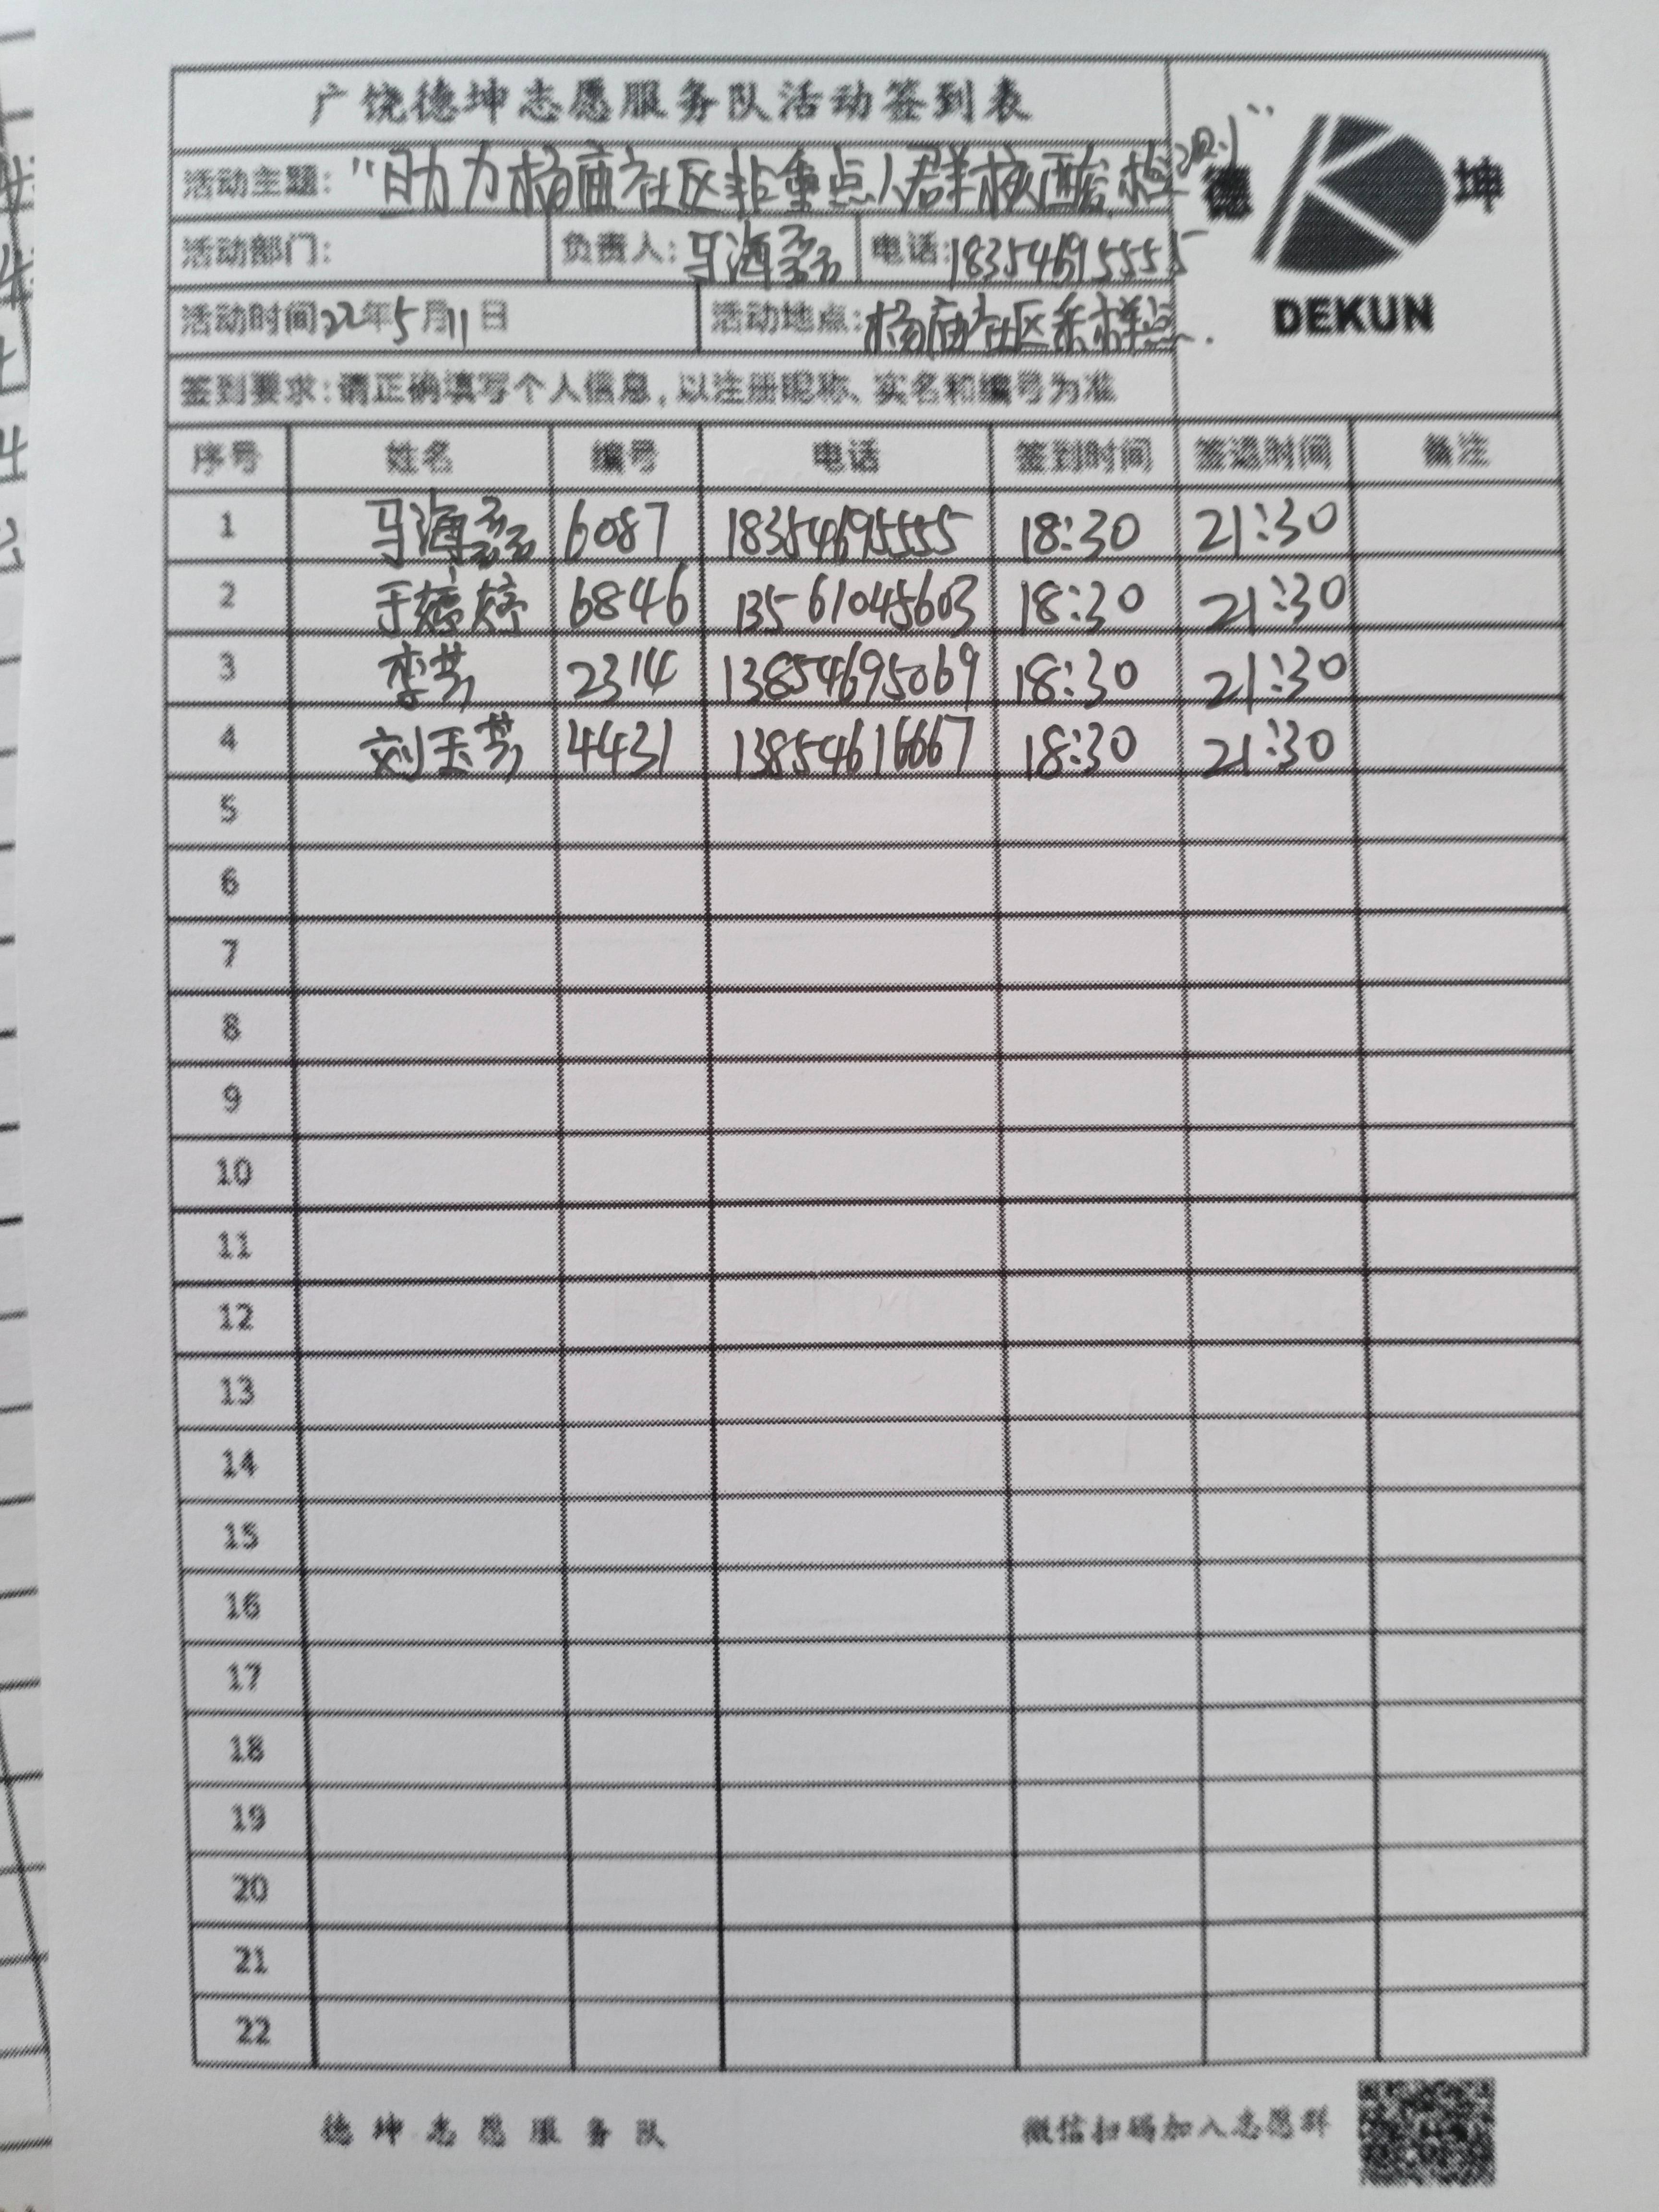 广饶德坤志愿服务队活动签到表
活动主题:"助力杨庙社区非重点人群核酸检测"
德 坤
活动部门: 负责人: 马海磊 电话:18354695555
活动时间22年5月11日 活动地点:杨庙社区采样点.
DEKUN
签到要求:请正确填写个人信息,以注册昵称、实名和编号为准
序号 姓名 编号 电话 签到时间 签退时间 备注
1 马海磊 6087 18354695555 18:30 21:30
2 于婷婷 6846 13561045603 18:30 21:30
3 李芳 2314 13854695069 18:30 21:30
4 刘玉芳 4431 13854616667 18:30 21:30
5
6
7
8
9
10
11
12
13
14
15
16
17
18
19
20
21
22
德坤志愿服务队 微信扫码加入志愿群